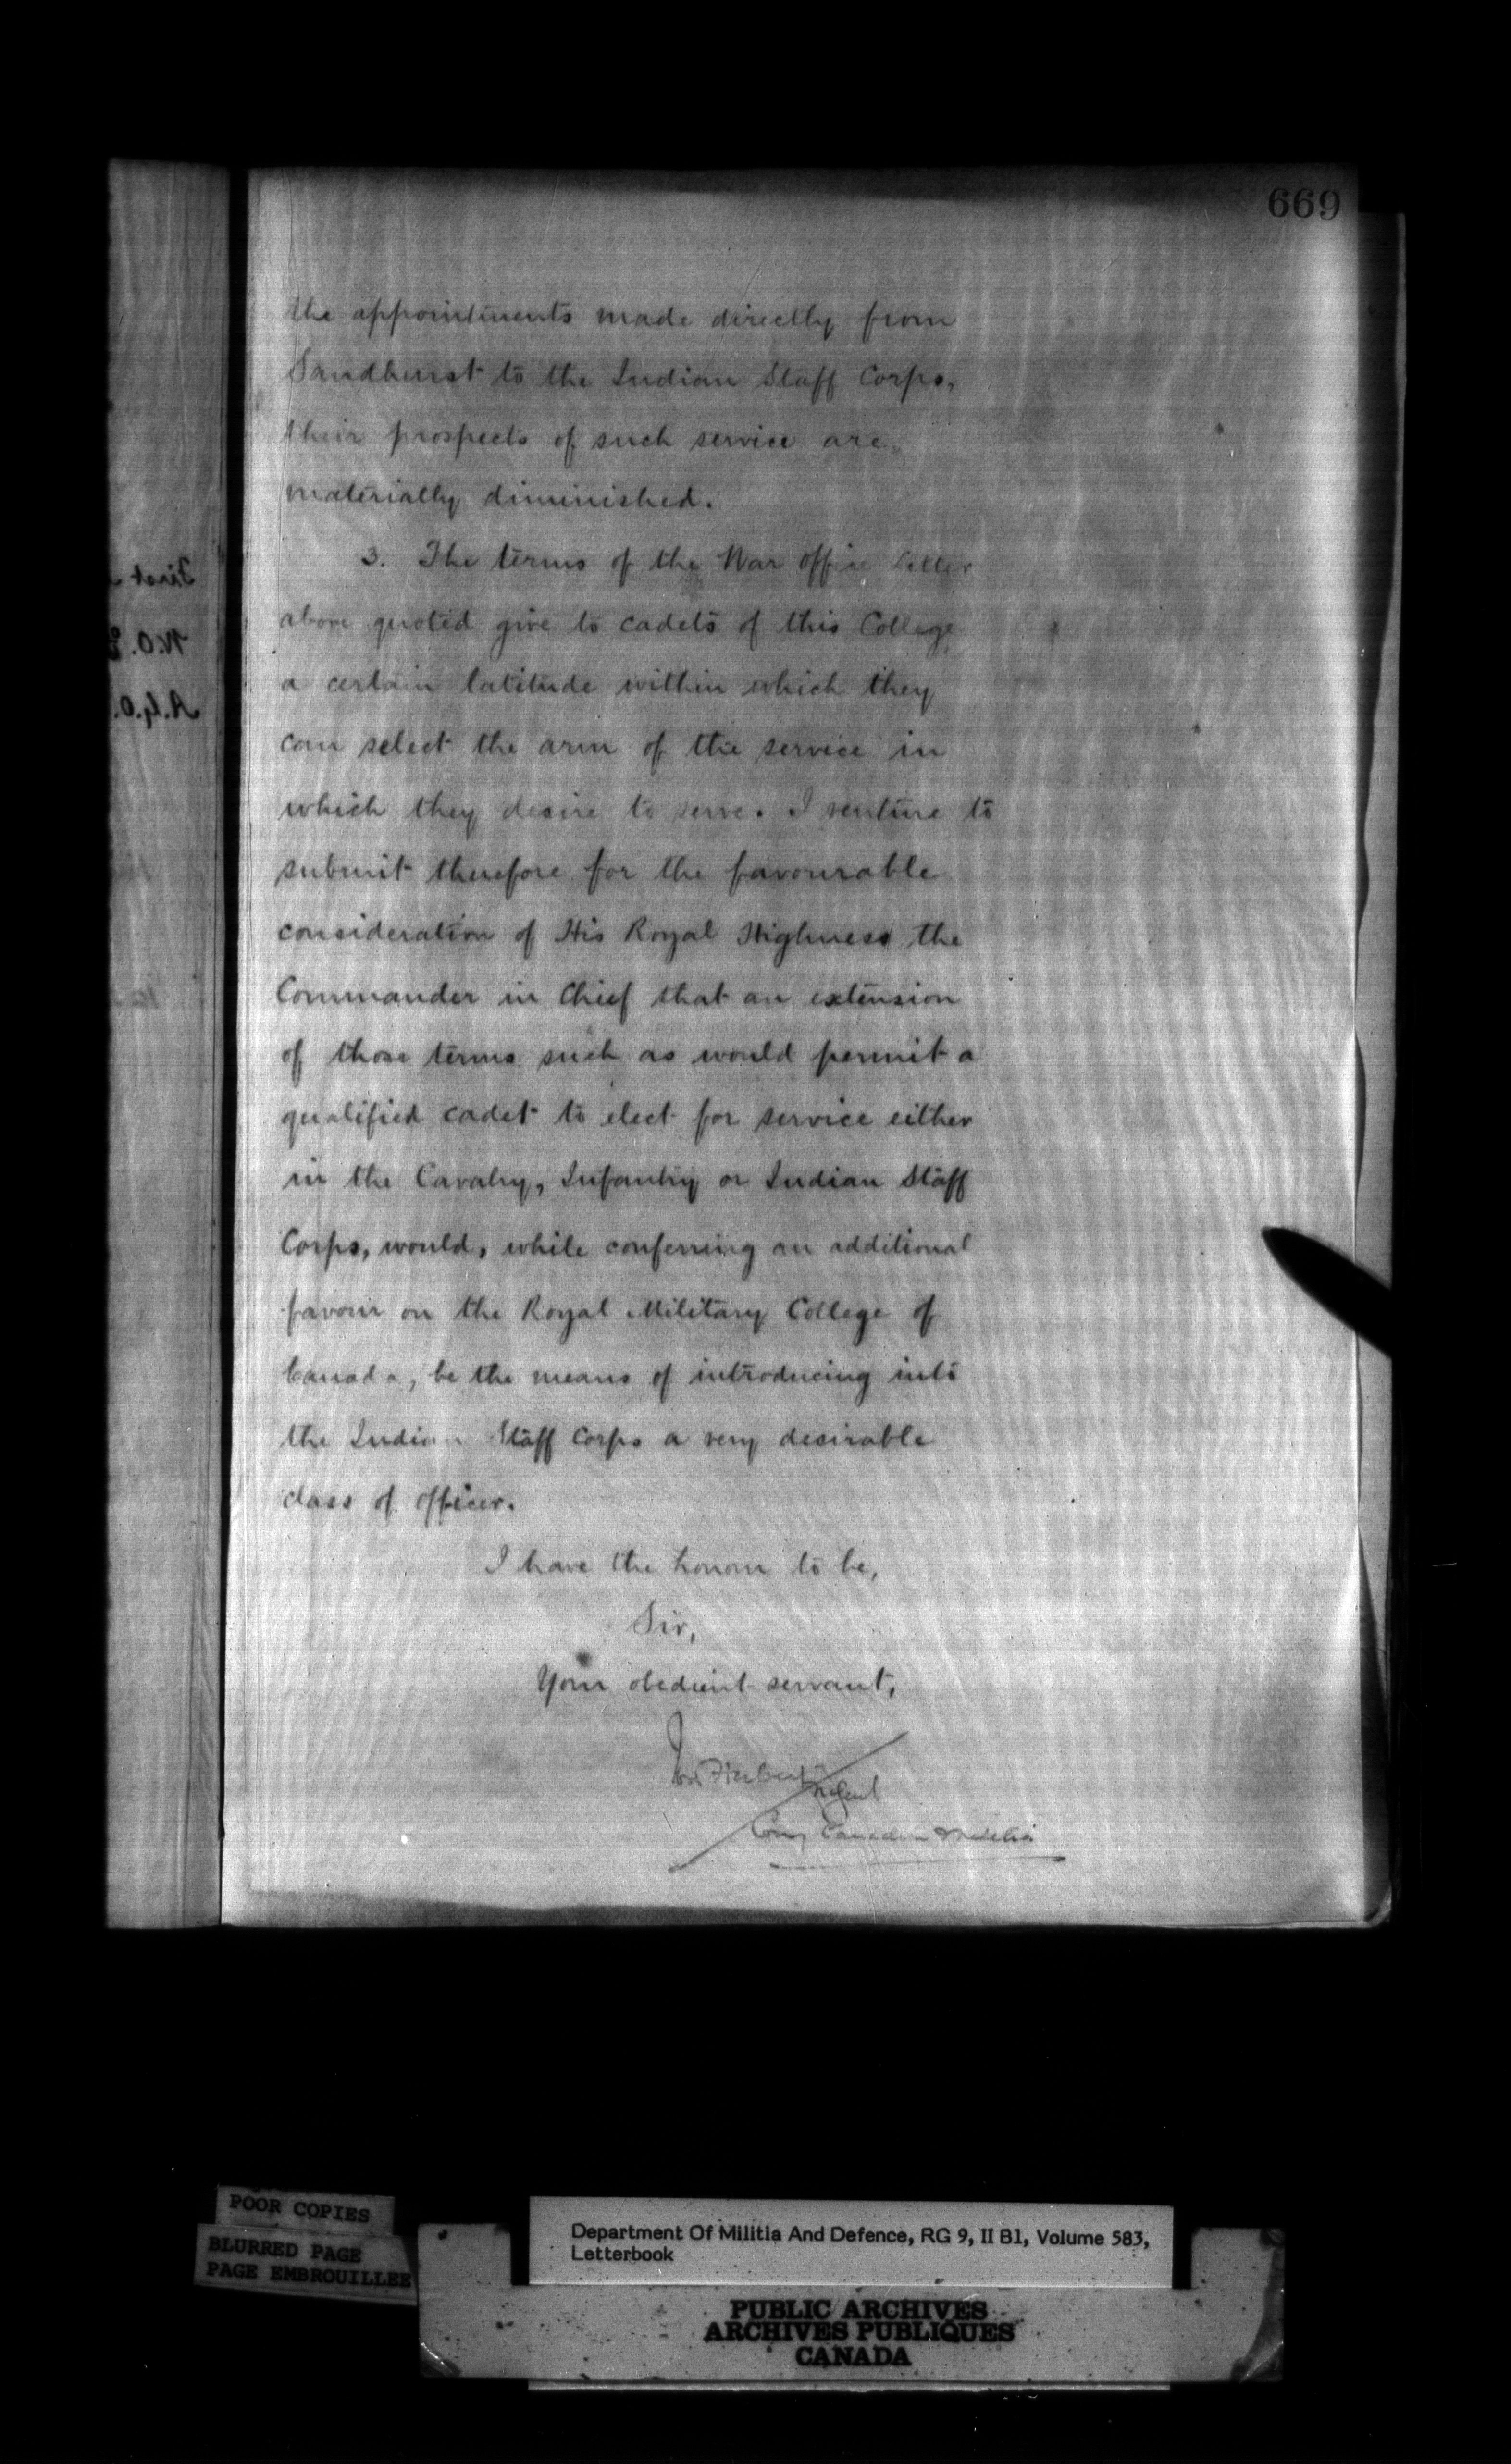 669
the appointments made directly from
Sandhurst to the Indian Staff Corps,
their prospects of such service are
materially diminished.
3. The terms of the War Office Letter
above quoted give to cadets of this College
a certain latitude within which they
can select the arm of the service in
which they desire to serve. I venture to
submit therefore for the favourable
consideration of His Royal Highness the
Commander in Chief that an extension
of those terms such as would permit a
qualified cadet to elect for service either
in the Cavalry, Infantry or Indian Staff
Corps, would, while conferring an additional
favour on the Royal Military College of
Canada, be the means of introducing into
the Indian Staff Corps a very desirable
class of officer.
I have the honour to be,
Sir,
Your obedient servant,
Ivor Herbert
M Genl
Comg Canadian Militia
POOR COPIES
BLURRED PAGE
PAGE EMBROUILLEE
Department Of Militia And Defence, RG 9, II B1, Volume 583,
Letterbook
PUBLIC ARCHIVES
ARCHIVES PUBLIQUES
CANADA